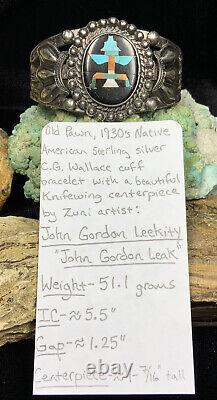 Old Pawn, 1930's Native
American Sterling silver
C.G. Wallace cuff
bracelet with a beautiful
Knifewing centerpiece
by Zuni artist:
John Gordon Leekity
"John Gordon Leak"
Weight- 51.1 grams
IC- ≈ 5.5"
Gap- ≈ 1.25"
Centerpiece- 7/16" tall
ebay.com